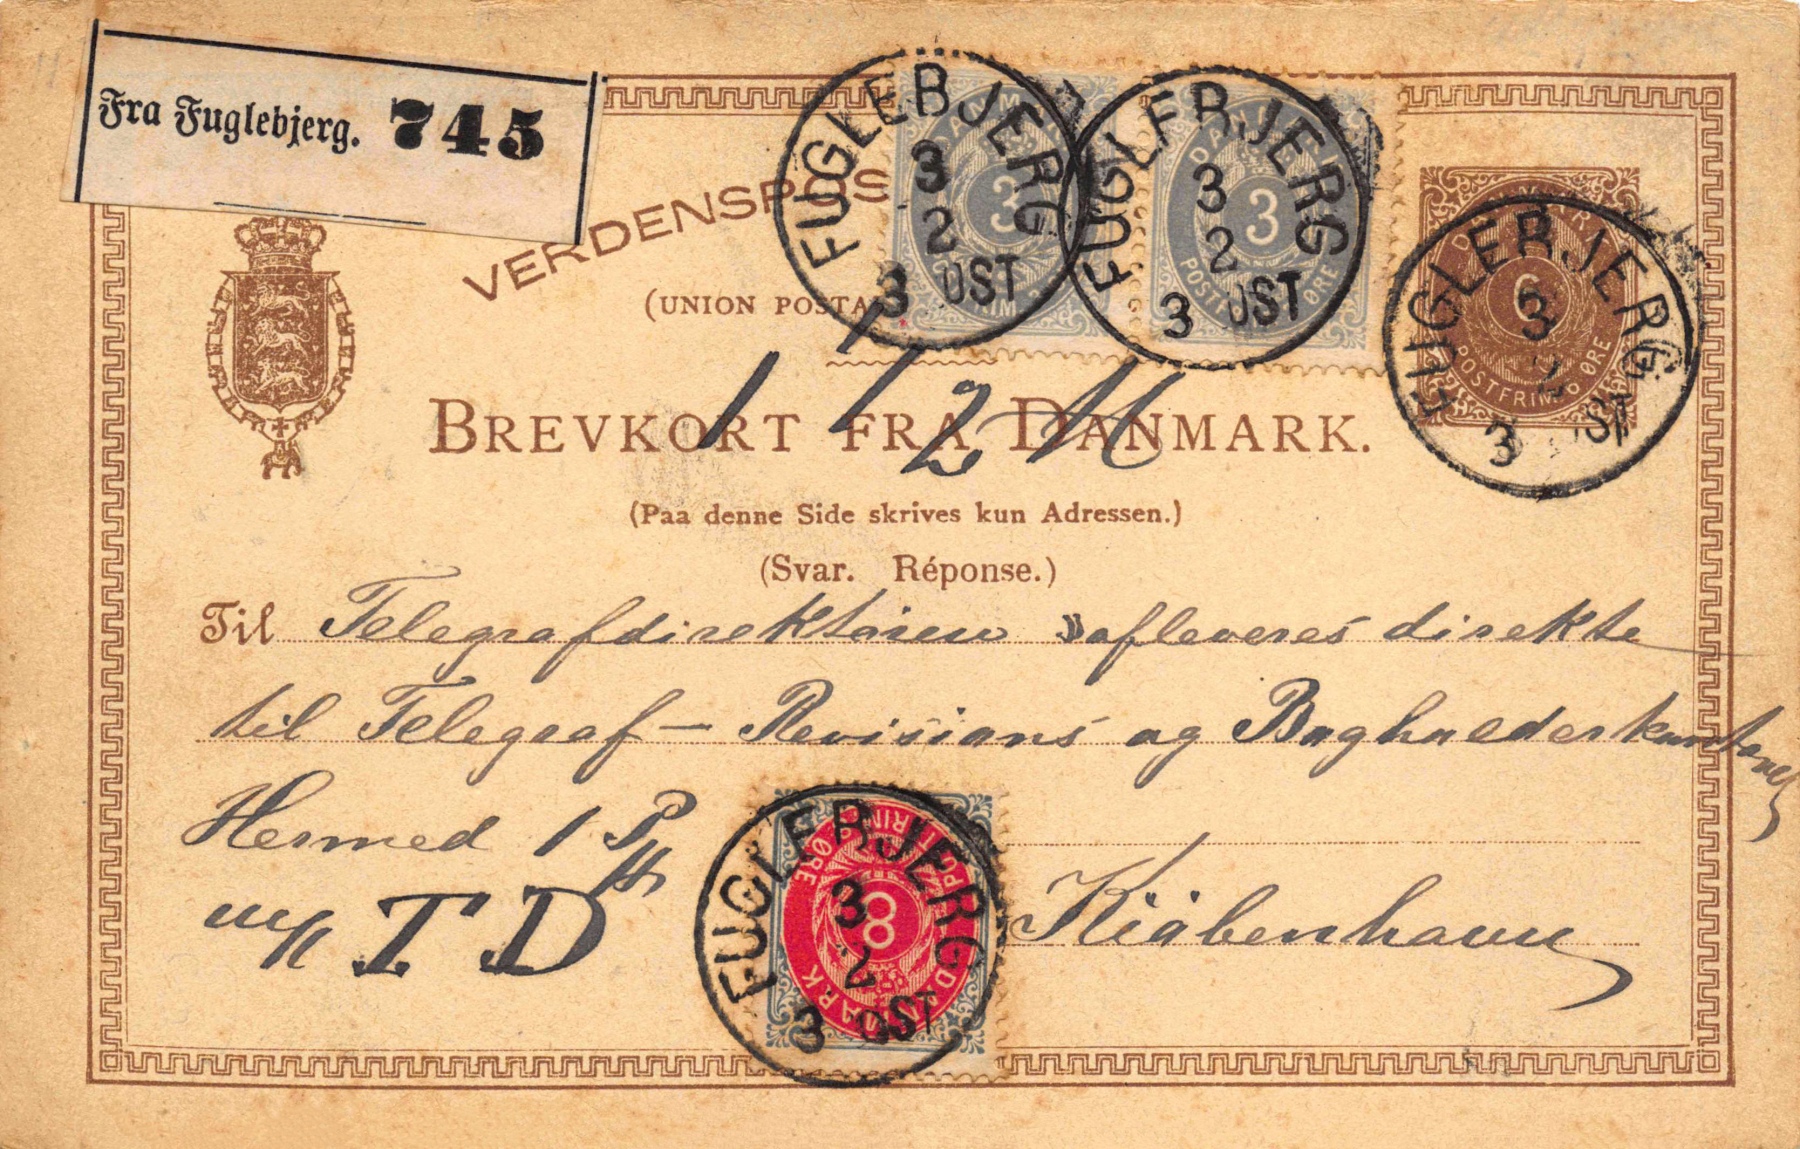 Fra Fuglebjerg. 745
VERDENSPOS
(UNION POSTA
FUGLEBJERG
3
2
3 OST
3
FUGLEBJERG
3
2
3 OST
3
POSTFRIM ØRE
FUGLEBJERG
3
2
3 OST
6
POSTFRIM. 6 ØRE
1 1/2
BREVKORT FRA DANMARK.
(Paa denne Side skrives kun Adressen.)
(Svar. Réponse.)
Til Telegrafdirektøren afleveres direkte
til Telegraf- Revisions og Bogholderkontoret
Hermed 1 P
TD
Kiøbenhavn
FUGLEBJERG
3
2
3 OST
8
DANMARK POSTFRIM 8 ØRE